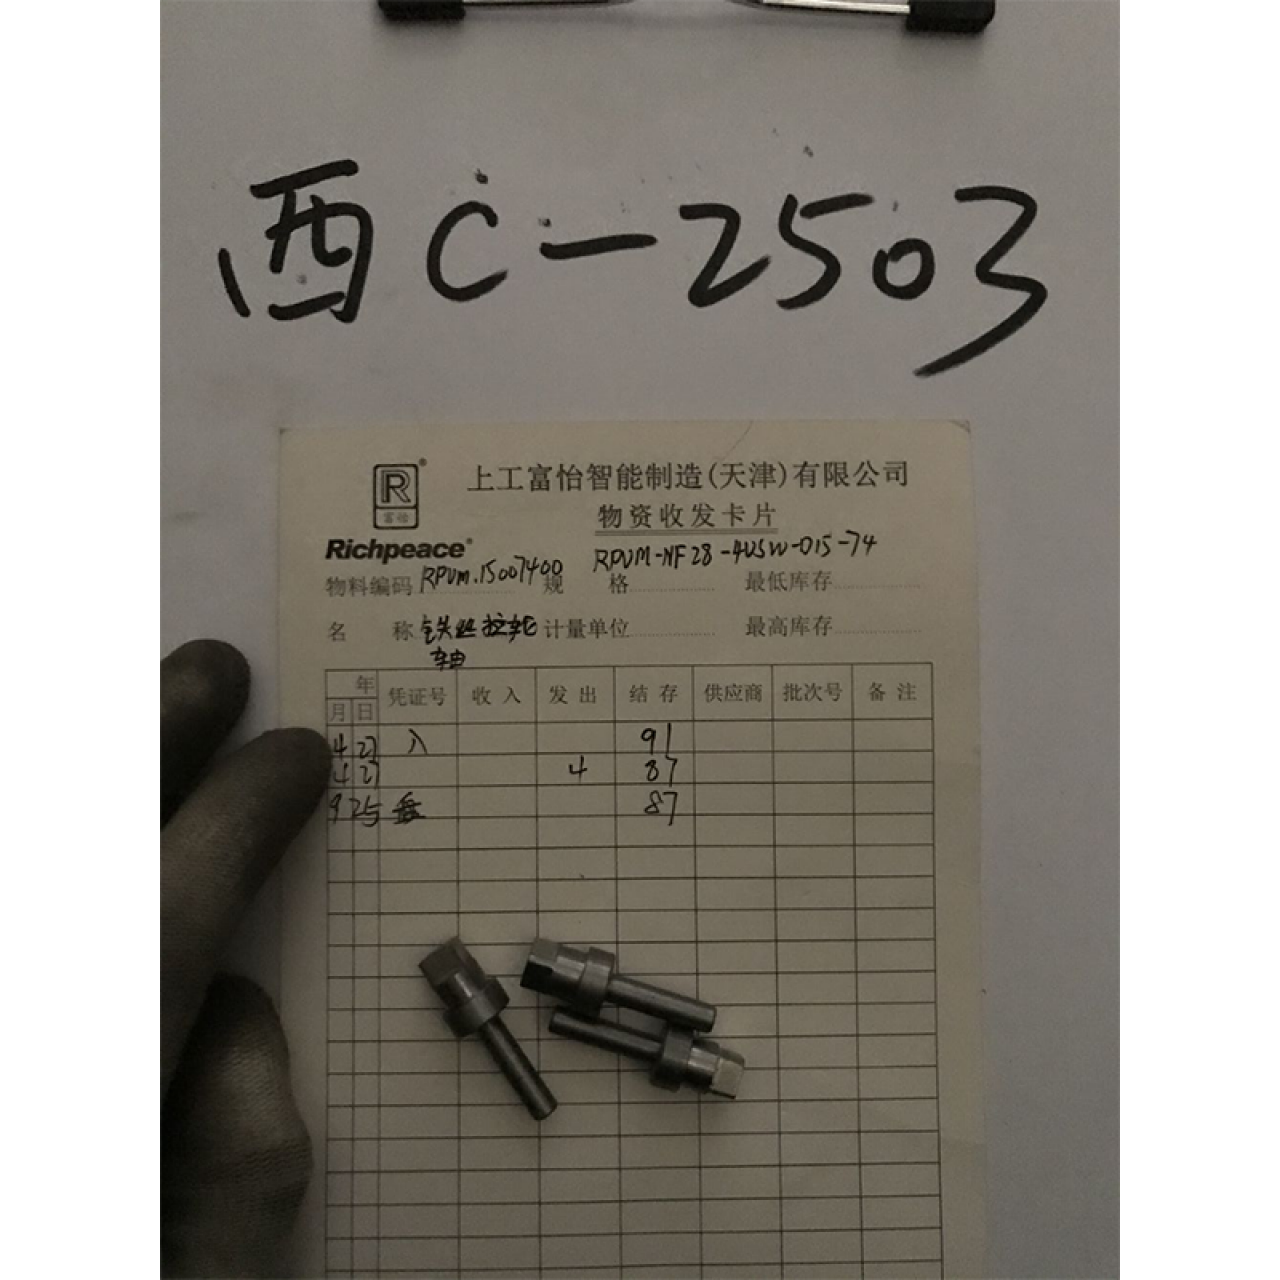 西C-2503
R®
富怡
上工富怡智能制造(天津)有限公司
物资收发卡片
Richpeace®
RPVM-NF28-4USW-015-74
物料编码 RPVM.15007400 规 格 最低库存
名 称 铁丝拉轮 计量单位 最高库存
轴
年 凭证号 收入 发出 结存 供应商 批次号 备注
月 日
4 27 入 91
4 27 4 87
9 25 盘 87